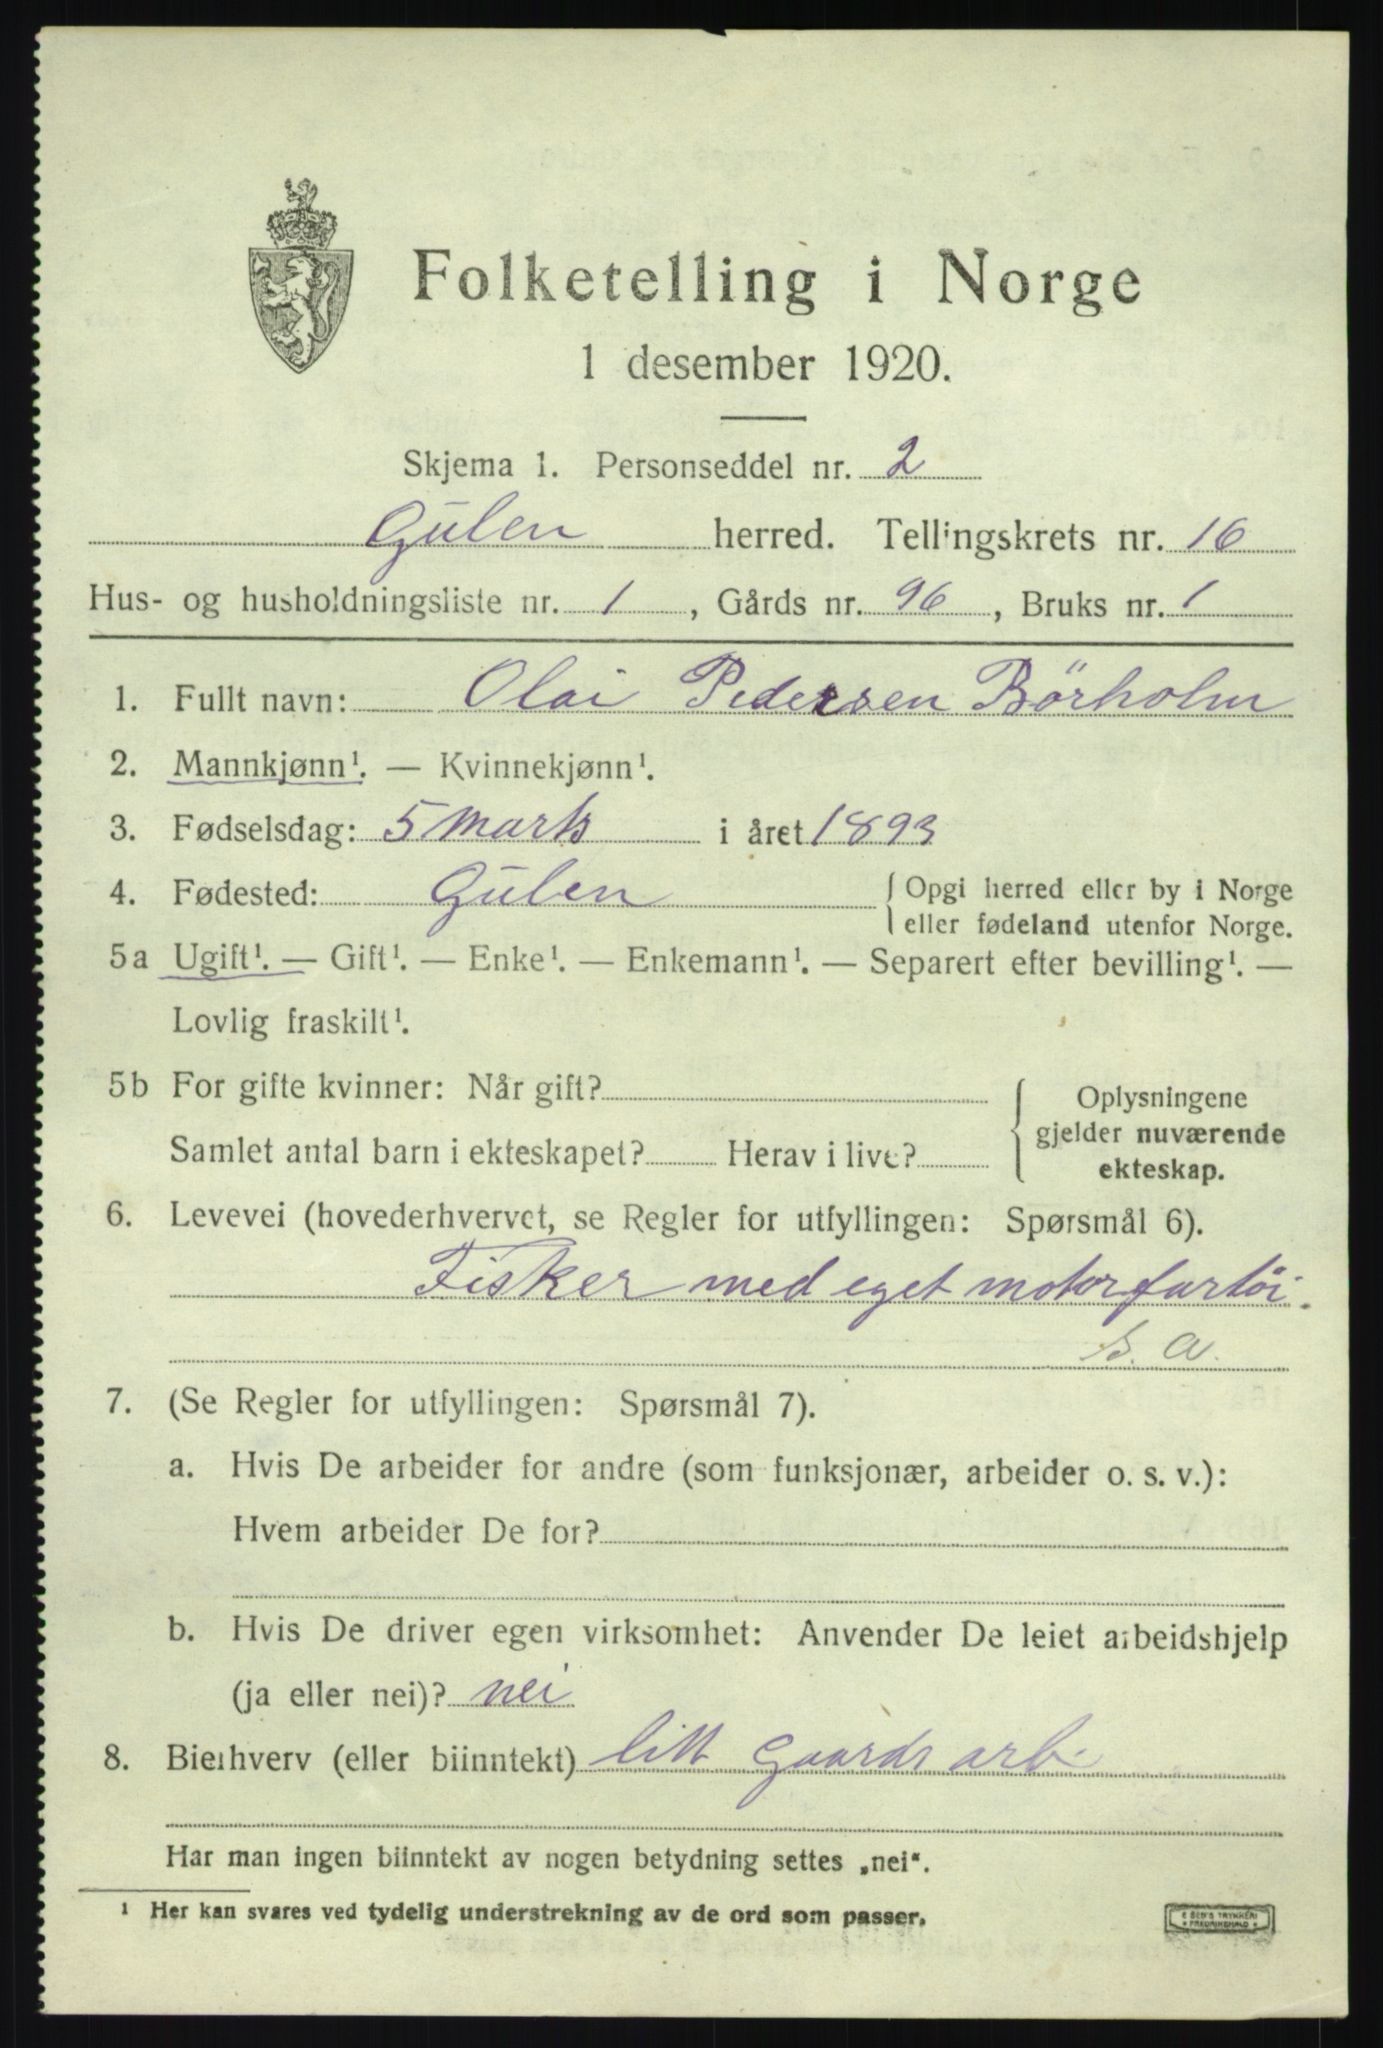 Folketelling i Norge
1 desember 1920.
Skjema 1. Personseddel nr. 2
Gulen herred. Tellingskrets nr. 16
Hus- og husholdningsliste nr. 1, Gårds nr. 96, Bruks nr. 1
1. Fullt navn: Olai Pedersen Börholm
2. Mannkjønn¹. — Kvinnekjønn¹.
3. Fødselsdag: 5 Marts i året 1893
4. Fødested: Gulen { Opgi herred eller by i Norge
eller fødeland utenfor Norge.
5a Ugift¹. — Gift¹. — Enke¹. — Enkemann¹. — Separert efter bevilling¹. —
Lovlig fraskilt¹.
5b For gifte kvinner: Når gift? { Oplysningene
gjelder nuværende
Samlet antal barn i ekteskapet? Herav i live?
ekteskap.
6. Levevei (hovederhvervet, se Regler for utfyllingen: Spørsmål 6).
Fisker med eget motorfartöi.
S. A.
7. (Se Regler for utfyllingen: Spørsmål 7).
a. Hvis De arbeider for andre (som funksjonær, arbeider o. s. v.):
Hvem arbeider De for?
b. Hvis De driver egen virksomhet: Anvender De leiet arbeidshjelp
(ja eller nei)? nei
8. Bierhverv (eller biinntekt) litt Gaards arb.
Har man ingen biinntekt av nogen betydning settes „nei“.
¹ Her kan svares ved tydelig understrekning av de ord som passer.
E SEM'S TRYKKERI
FREDRIKSHALD